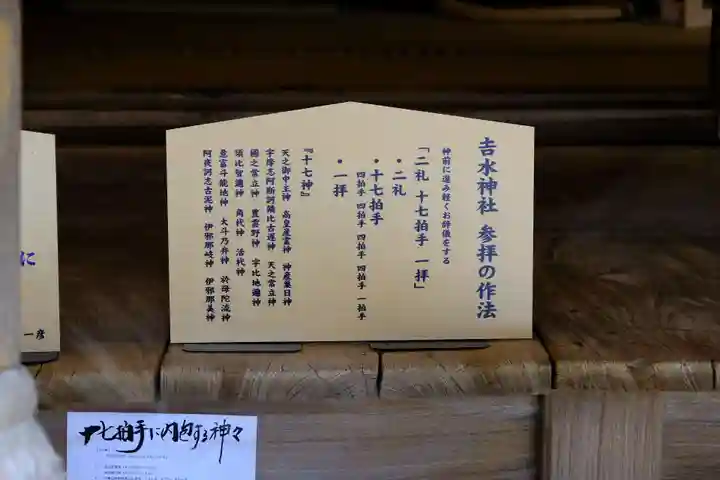 𠮷水神社 参拝の作法
神前に進み軽くお辞儀をする
「二礼 十七拍手 一拝」
・二礼
・十七拍手
四拍手 四拍手 四拍手 四拍手 一拍手
・一拝
『十七神』
天之御中主神 高皇産霊神 神産巣日神
宇摩志阿斯訶備比古遅神 天之常立神
國之常立神 豊雲野神 宇比地邇神
須比智邇神 角代神 活代神
意富斗能地神 大斗乃弁神 於母陀流神
阿夜訶志古泥神 伊邪那岐神 伊邪那美神
に
一彦
十七拍手に内包する神々